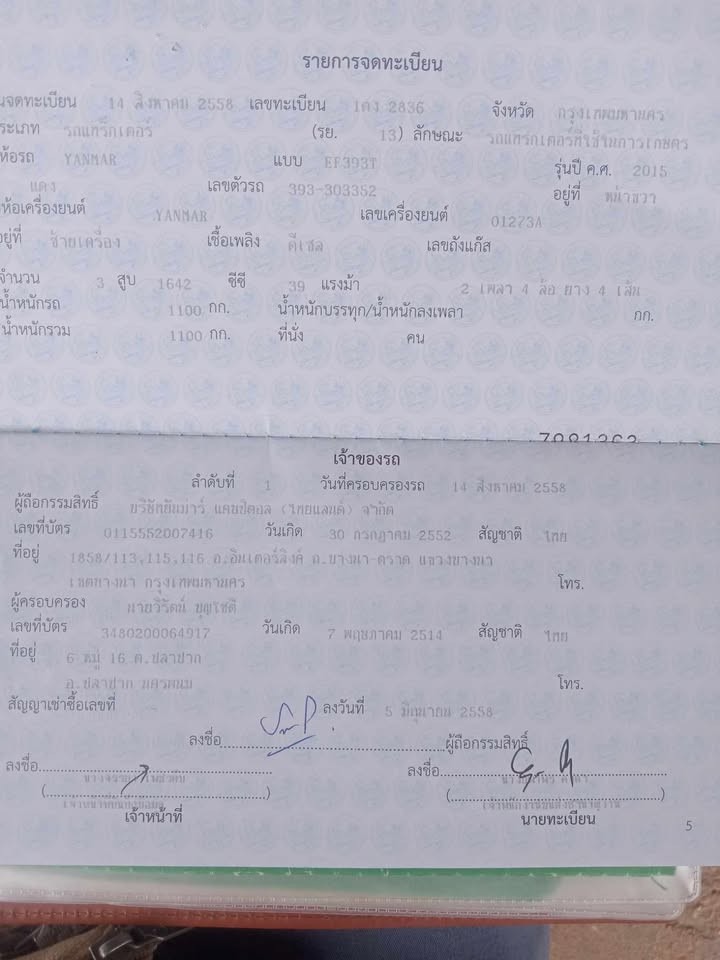 รายการจดทะเบียน
นจดทะเบียน 14 สิงหาคม 2558 เลขทะเบียน 1ตง 2836 จังหวัด กรุงเทพมหานคร
ระเภท รถแทรกเตอร์ (รย. 13) ลักษณะ รถแทรกเตอร์ที่ใช้ในการเกษตร
ห้อรถ YANMAR แบบ EF393T รุ่นปี ค.ศ. 2015
แดง เลขตัวรถ 393-303352 อยู่ที่
ห้อเครื่องยนต์ YANMAR เลขเครื่องยนต์ 01273A
อยู่ที่ ซ้ายเครื่อง เชื้อเพลิง ดีเซล เลขถังแก๊ส
จำนวน 3 สูบ 1642 ซีซี 39 แรงม้า 2 เพลา 4 ล้อ ยาง 4 เส้น
น้ำหนักรถ 1100 กก. น้ำหนักบรรทุก/น้ำหนักลงเพลา กก.
น้ำหนักรวม 1100 กก. ที่นั่ง คน
เจ้าของรถ
ลำดับที่ 1 วันที่ครอบครองรถ 14 สิงหาคม 2558
ผู้ถือกรรมสิทธิ์ บริษัทยันม่าร์ แคปปิตอล (ไทยแลนด์) จำกัด
เลขที่บัตร 0115552007416 วันเกิด 30 กรกฎาคม 2552 สัญชาติ ไทย
ที่อยู่ 1858/113,115,116 อ.อินเตอร์ลิงค์ ถ.บางนา-ตราด แขวงบางนา
เขตบางนา กรุงเทพมหานคร โทร.
ผู้ครอบครอง นายวิรัตน์ บุญโชติ
เลขที่บัตร 3480200064917 วันเกิด 7 พฤษภาคม 2514 สัญชาติ ไทย
ที่อยู่ 6 หมู่ 16 ต.ปลาปาก
อ.ปลาปาก นครพนม โทร.
สัญญาเช่าซื้อเลขที่ ลงวันที่ 5 มิถุนายน 2558
ลงชื่อ ผู้ถือกรรมสิทธิ์
ลงชื่อ ลงชื่อ
เจ้าหน้าที่ นายทะเบียน
5